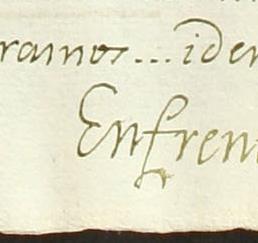 ramos...iden
Enfren